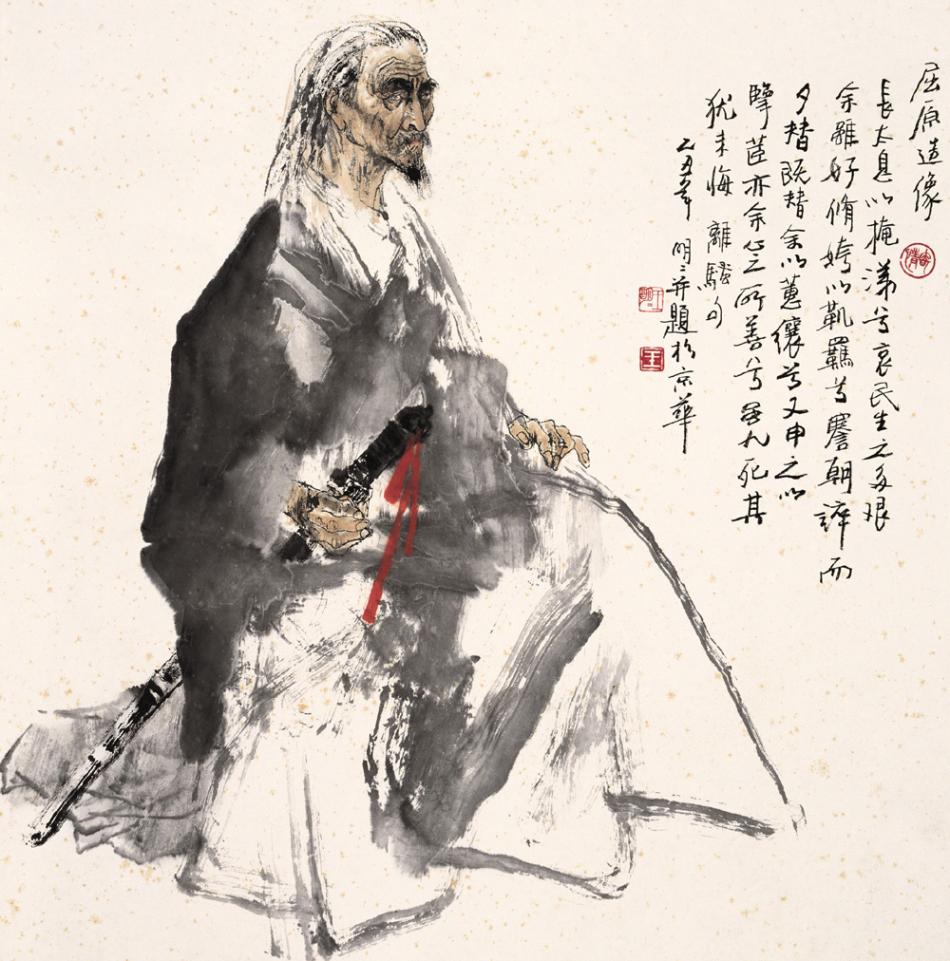 屈原造像
長太息以掩涕兮哀民生之多艰
余雖好脩姱以鞿羈兮謇朝誶而
夕替既替余以蕙纕兮又申之以
擥茝亦余心之所善兮虽九死其
犹未悔 離騷句
乙丑年 明〻并題於京華
王